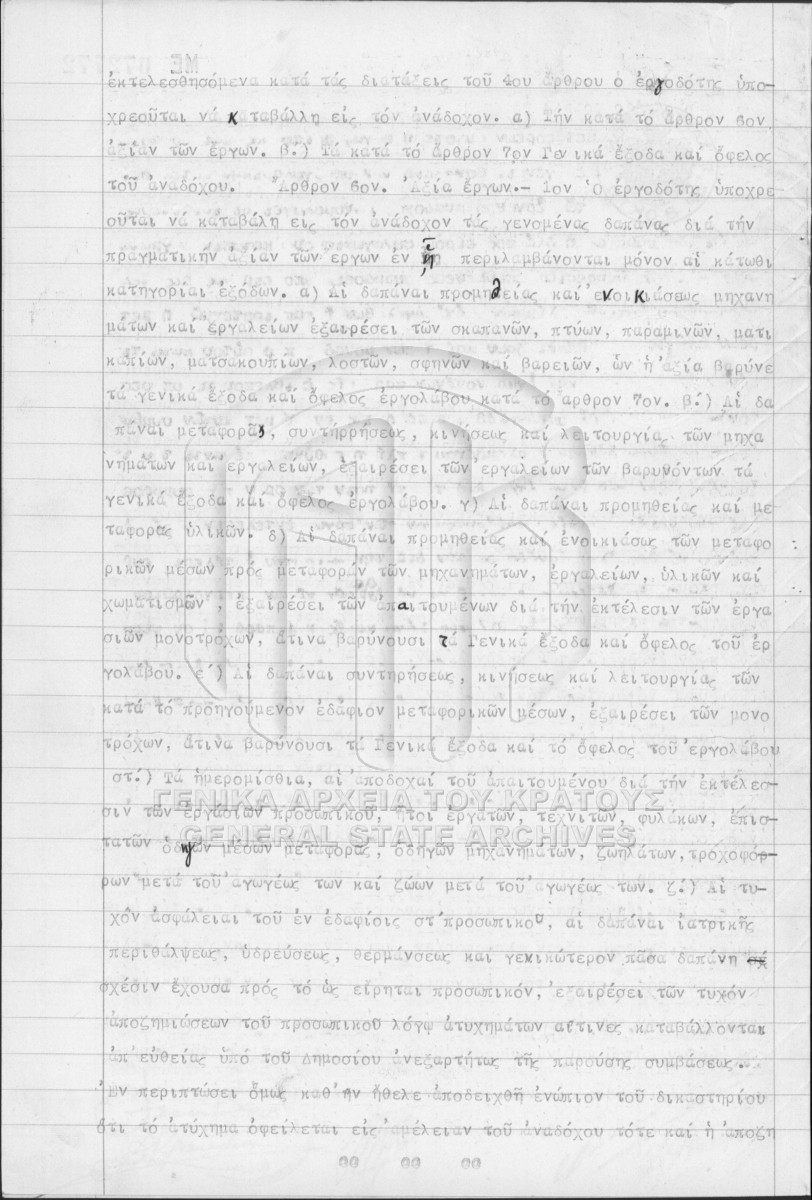 ἐκτελεσθησόμενα κατά τάς διατάξεις τοῦ 4ου ἄρθρου ὁ ἐργοδότης ὑπο-
χρεοῦται νά καταβάλλη εἰς τόν ἀνάδοχον. α) Τήν κατά τό ἄρθρον 6ον
ἀξίαν τῶν ἔργων. β.) Τά κατά τό ἄρθρον 7ον Γενικά ἔξοδα καί ὄφελος
τοῦ ἀναδόχου. Ἄρθρον 6ον. Ἀξία ἔργων.- 1ον Ὁ ἐργοδότης ὑποχρε
οῦται νά καταβάλη εἰς τόν ἀνάδοχον τάς γενομένας δαπάνας διά τήν
πραγματικήν ἀξίαν τῶν ἔργων ἐν ᾗ περιλαμβάνονται μόνον αἱ κάτωθι
κατηγορίαι ἐξόδων. α) Αἱ δαπάναι προμηθείας καί ἐνοικιάσεως μηχανη
μάτων καί ἐργαλείων ἐξαιρέσει τῶν σκαπανῶν, πτύων, παραμινῶν, ματι
καπίων, ματσακουπίων, λοστῶν, σφηνῶν καί βαρειῶν, ὧν ἡ ἀξία βαρύνε
τά γενικά ἔξοδα καί ὄφελος ἐργολάβου κατά τό ἄρθρον 7ον. β.) Αἱ δα
πάναι μεταφορᾶς, συντηρρήσεως, κινήσεως καί λειτουργίας τῶν μηχα
νημάτων καί ἐργαλείων, ἐξαιρέσει τῶν ἐργαλείων τῶν βαρυνόντων τά
γενικά ἔξοδα καί ὄφελος ἐργολάβου. γ) Αἱ δαπάναι προμηθείας καί με
ταφορᾶς ὑλικῶν. δ) Αἱ δαπάναι προμηθείας καί ἐνοικιάσως τῶν μεταφο
ρικῶν μέσων πρός μεταφοράν τῶν μηχανημάτων, ἐργαλείων, ὑλικῶν καί
χωματισμῶν , ἐξαιρέσει τῶν ἀπαιτουμένων διά τήν ἐκτέλεσιν τῶν ἐργα
σιῶν μονοτρόχων, ἅτινα βαρύνουσι τά Γενικά ἔξοδα καί ὄφελος τοῦ ἐρ
γολάβου. ε΄) Αἱ δαπάναι συντηρήσεως, κινήσεως καί λειτουργίας τῶν
κατά τό προηγούμενον ἐδάφιον μεταφορικῶν μέσων, ἐξαιρέσει τῶν μονο
τρόχων, ἅτινα βαρύνουσι τά Γενικά ἔξοδα καί τό ὄφελος τοῦ ἐργολάβου
στ.) Τά ἡμερομίσθια, αἱ ἀποδοχαί τοῦ ἀπαιτουμένου διά τήν ἐκτέλεσ-
σιν τῶν ἐργασιῶν προσωπικοῦ, ἤτοι ἐργατῶν, τεχνιτῶν, φυλάκων, ἐπισ-
ΓΕΝΙΚΑ ΑΡΧΕΙΑ ΤΟΥ ΚΡΑΤΟΥΣ
GENERAL STATE ARCHIVES
τατῶν ὁδηγῶν μέσων μεταφορᾶς, ὁδηγῶν μηχανημάτων, ζωηλάτων, τρόχοφόρ-
ρων μετά τοῦ ἀγωγέως των καί ζώων μετά τοῦ ἀγωγέως των. ζ.) Αἱ τυ-
χόν ἀσφάλειαι τοῦ ἐν ἐδαφίοις στ΄ προσωπικοῦ, αἱ δαπάναι ἰατρικῆς
περιθάλψεως, ὑδρεύσεως, θερμάνσεως καί γενικώτερον πᾶσα δαπάνη
σχέσιν ἔχουσα πρός τό ὡς εἴρηται προσωπικόν, ἐξαιρέσει τῶν τυχόν
ἀποζημιώσεων τοῦ προσωπικοῦ λόγῳ ἀτυχημάτων αἵτινες καταβάλλονται
ἀπ' εὐθείας ὑπό τοῦ Δημοσίου ἀνεξαρτήτως τῆς παρούσης συμβάσεως.
Ἐν περιπτώσει ὅμως καθ' ἥν ἤθελε ἀποδειχθῆ ἐνώπιον τοῦ δικαστηρίου
ὅτι τό ἀτύχημα ὀφείλεται εἰς ἀμέλειαν τοῦ ἀναδόχου τότε καί ἡ ἀποζη